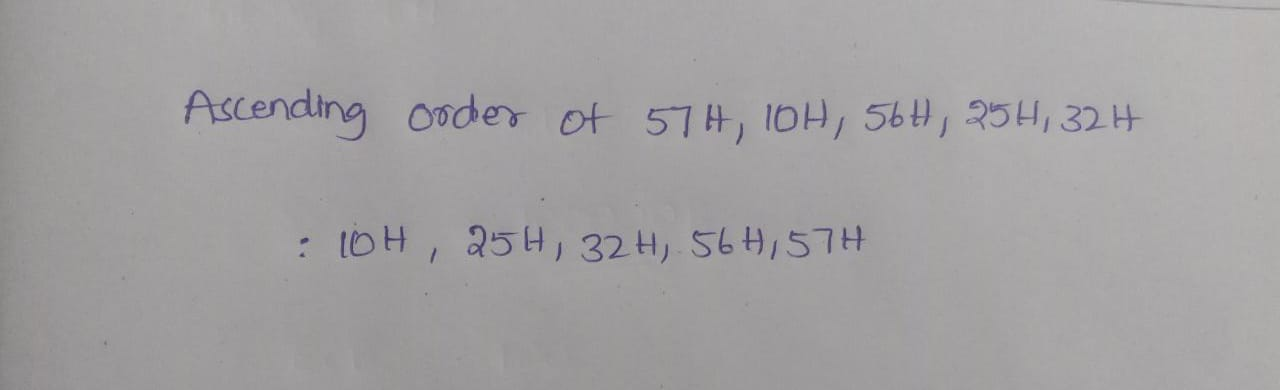 Ascending order of 57H, 10H, 56H, 25H, 32H
: 10H, 25H, 32H, 56H, 57H